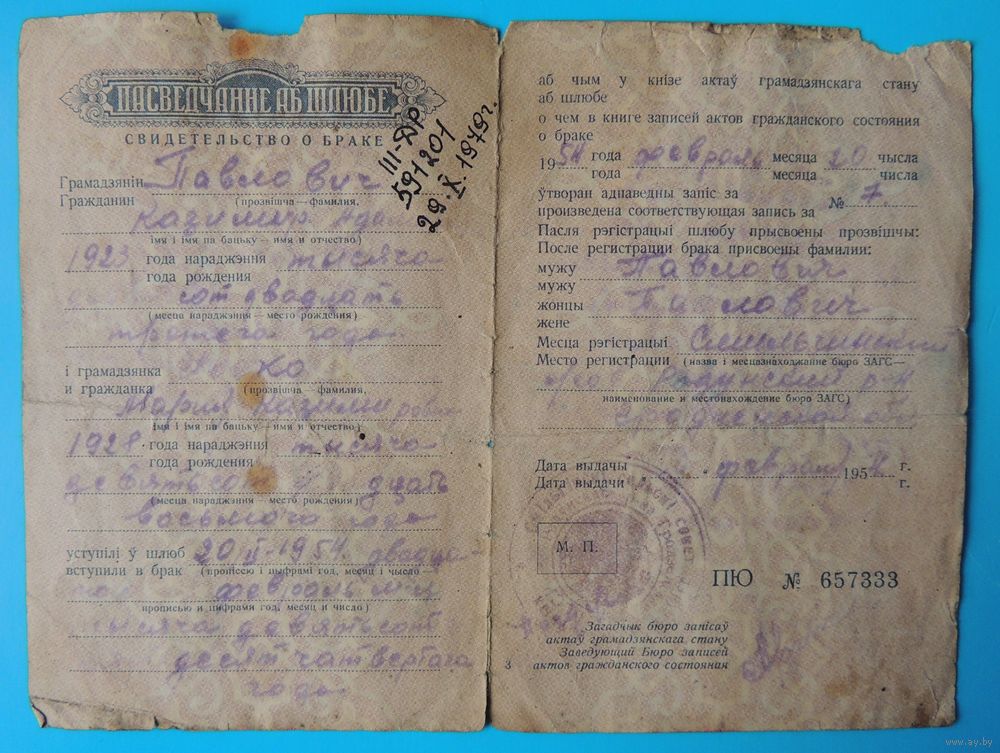 ПАСВЕДЧАНИЕ АБ ШЛЮБЕ
СВИДЕТЕЛЬСТВО О БРАКЕ
III-ДР
591201
29.X.1979г.
Грамадзянін Павлович
Гражданин (прозвішча—фамилия,
Казимир
імя і імя па бацьку—имя и отчество)
1923 года нараджэння тысяча
года рождения
сот двадцать
(месца нараджэння—место рождения)
третьего года
і грамадзянка
и гражданка (прозвішча—фамилия,
Мария
імя і імя па бацьку—имя и отчество)
1928 года нараджэння тысяча
года рождения
девятьсот двадцать
(месца нараджэння—место рождения)
восьмого года
уступілі ў шлюб 20 II-1954
вступили в брак (пропіссю і цыфрамі год, месяц і число—
февраля
прописью и цифрами год, месяц и число)
тысяча девятьсот
десят чатвертага
года
аб чым у кнізе актаў грамадзянскага стану
аб шлюбе
о чем в книге записей актов гражданского состояния
о браке
1954 года февраль месяца 20 чысла
года месяца числа
ўтворан адпаведны запіс за № 7.
произведена соответствующая запись за
Пасля рэгістрацыі шлюбу прысвоены прозвішчы:
После регистрации брака присвоены фамилии:
мужу Павлович
мужу
жонцы Павлович
жене
Месца рэгістрацыі
Место регистрации (назва і месцазнаходжанне бюро ЗАГС—
Радунский р-н
наименование и местонахождение бюро ЗАГС)
Гродненской об
Дата выдачы февраля 1954 г.
Дата выдачи г.
М. П.
ПЮ № 657333
Загадчык бюро запісаў
актаў грамадзянскага стану
Заведующий Бюро записей
актов гражданского состояния
3
www.ay.by